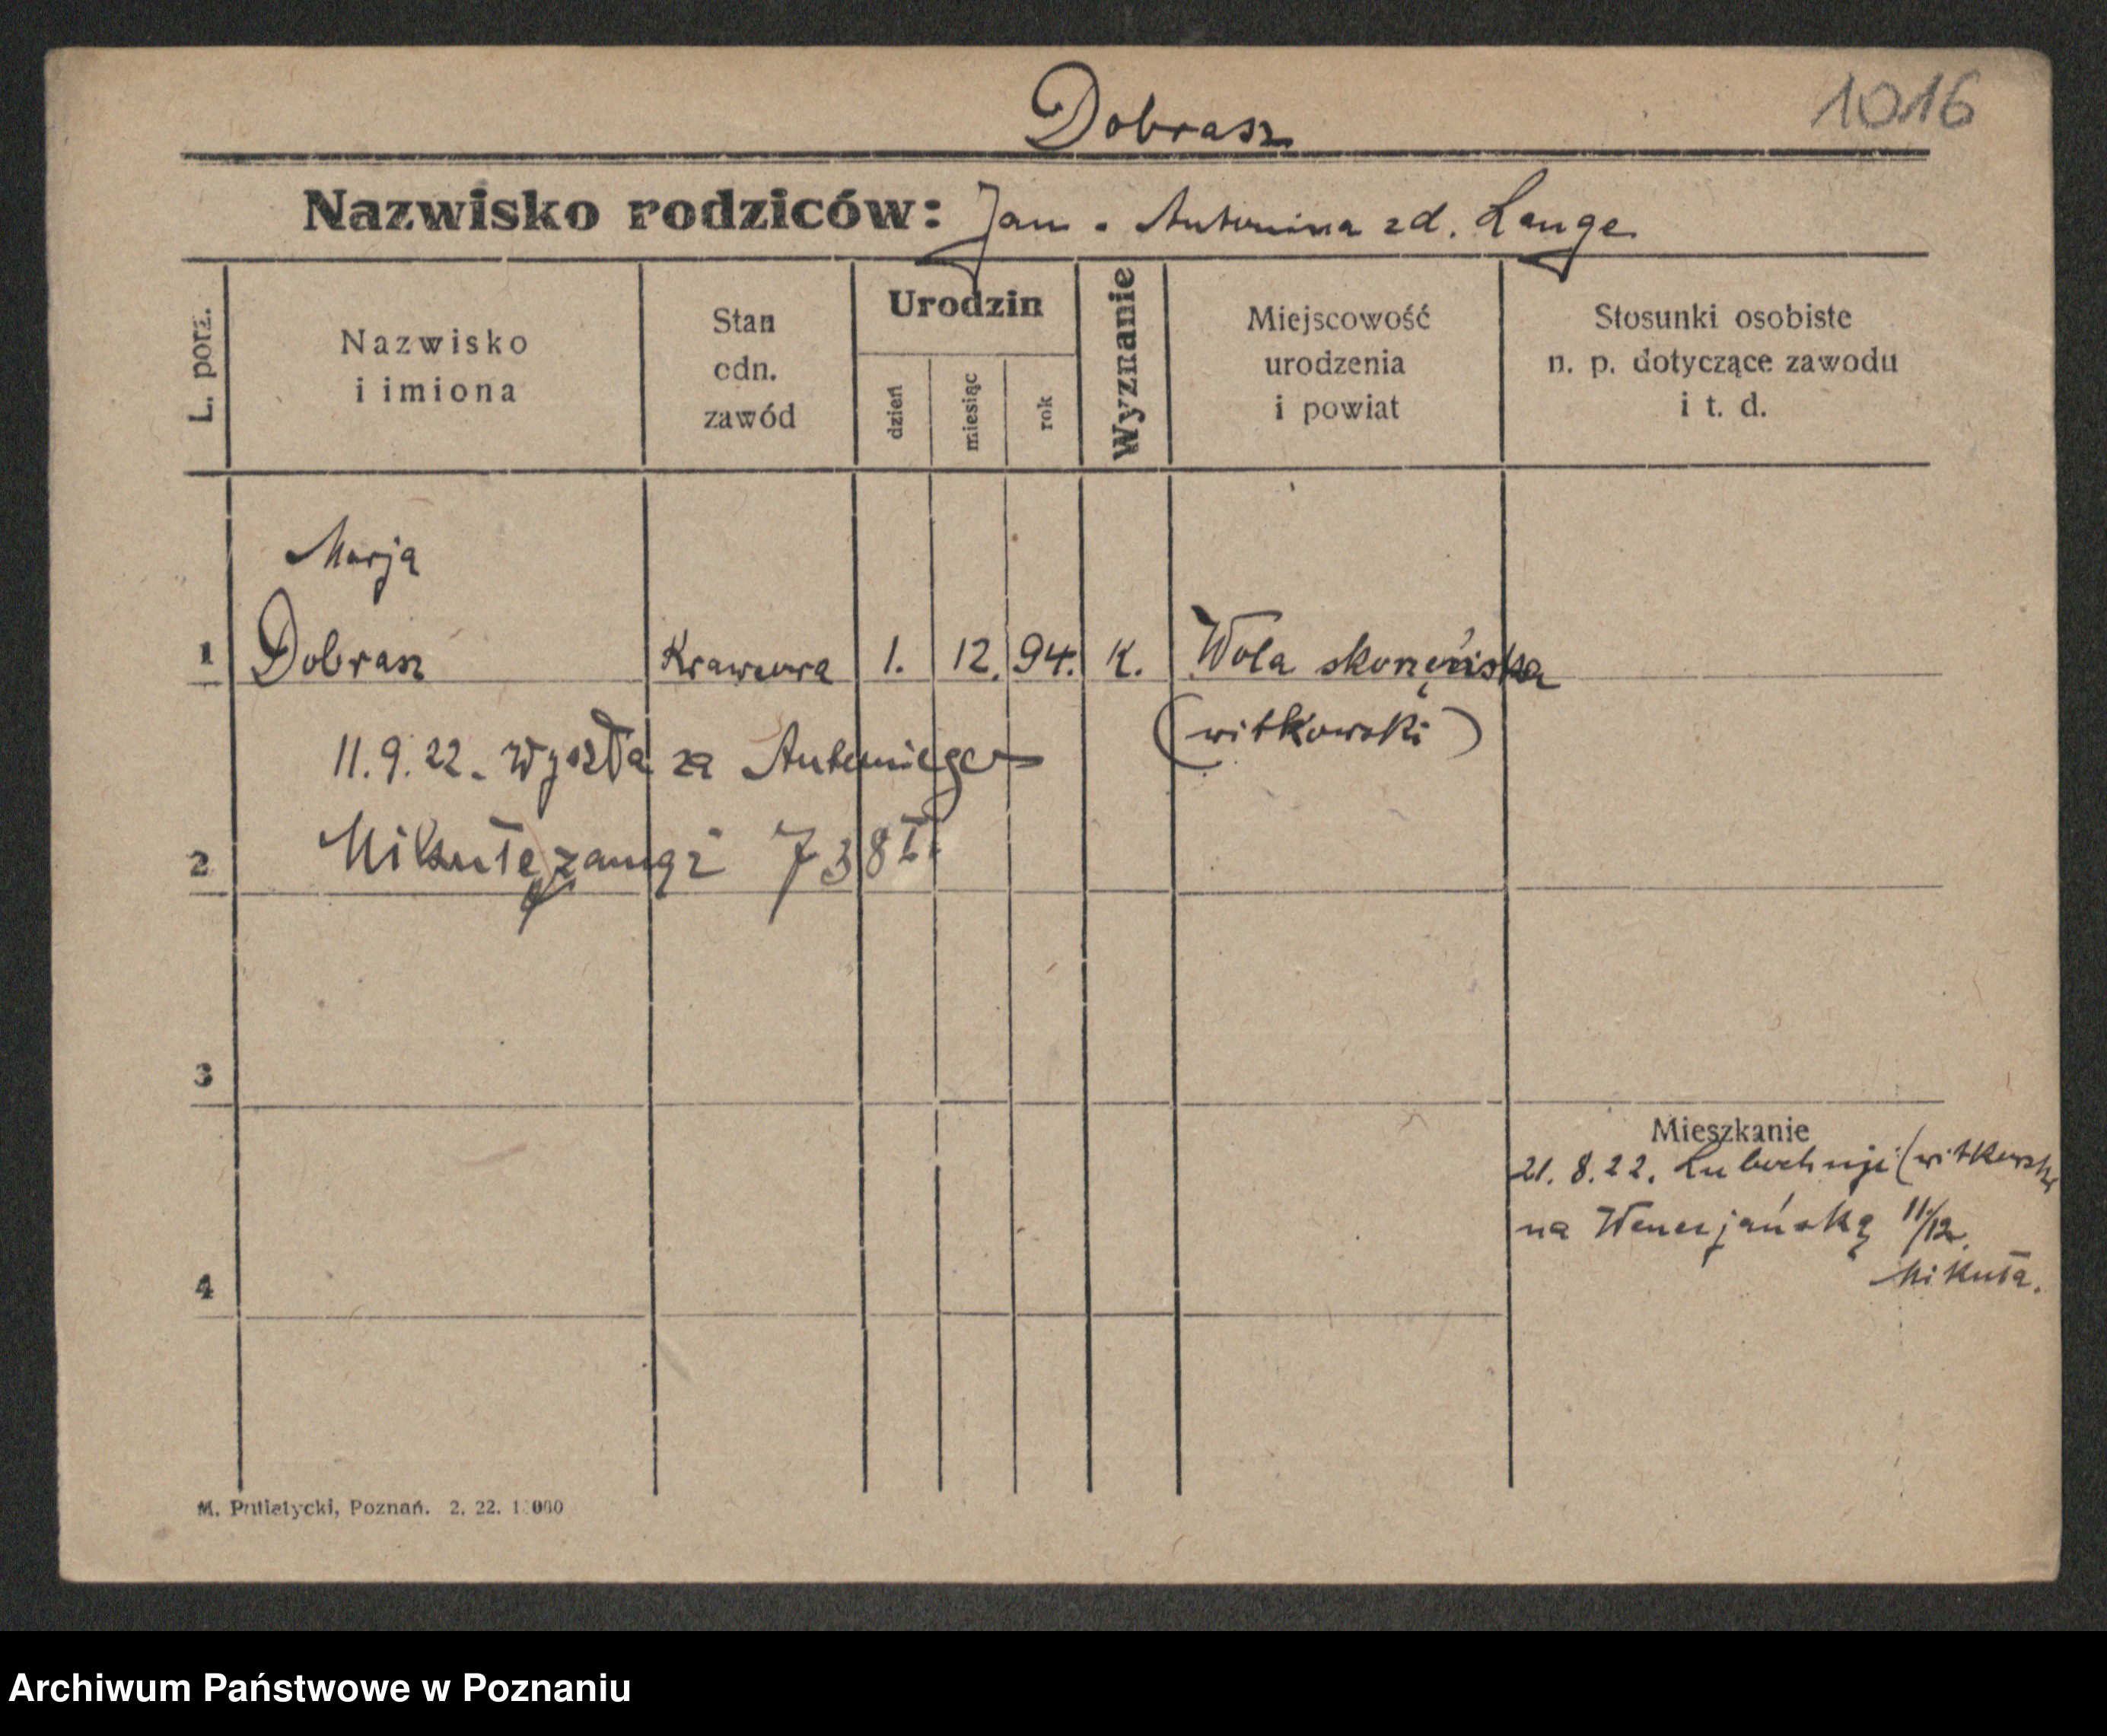 1016
Dobrasz
Nazwisko rodziców: Jan . Antonina zd. Lange
L. porz.
Nazwisko
i imiona
Stan
odn.
zawód
Urodzin
dzień
miesiąc
rok
Wyznanie
Miejscowość
urodzenia
i powiat
Stosunki osobiste
n. p. dotyczące zawodu
i t. d.
Marja
1 Dobrasz Krawcowa 1. 12. 94. K. Wola skorzęńska
(witkowski)
11.9.22. wyszła za Antoniego
2 Mikułę zamąż 738
3
Mieszkanie
21. 8. 22. (witkowski
na Wenecjańską 11/12.
Mikuła.
4
M. Putiatycki, Poznań. 2. 22.
Archiwum Państwowe w Poznaniu